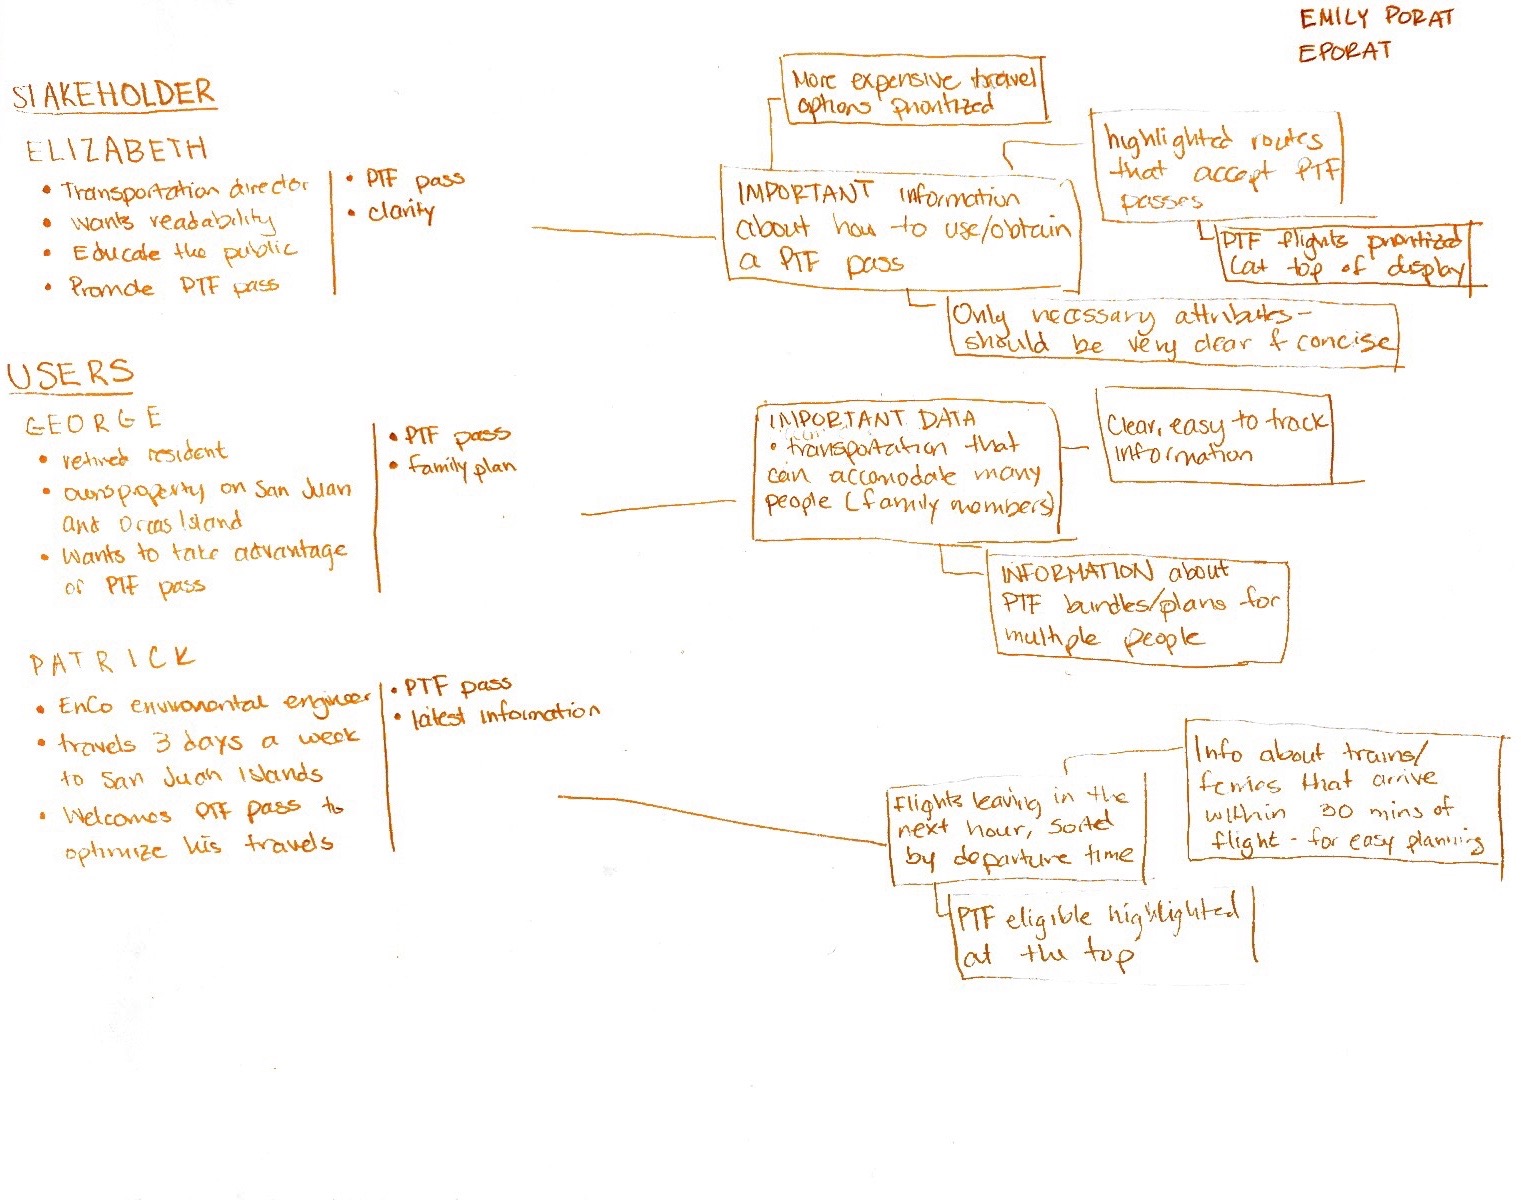 EMILY PORAT
EPORAT
STAKEHOLDER
ELIZABETH
• Transportation director
• wants readability
• Educate the public
• Promote PTF pass
• PTF pass
• clarity
More expensive travel
options prioritized
IMPORTANT information
about how to use/obtain
a PTF pass
highlighted routes
that accept PTF
passes
PTF flights prioritized
(at top of display)
Only necessary attributes-
should be very clear & concise
USERS
GEORGE
• retired resident
• owns property on San Juan
and Orcas Island
• Wants to take advantage
of PTF pass
• PTF pass
• family plan
IMPORTANT DATA
• transportation that
can accomodate many
people (family members)
Clear, easy to track
information
INFORMATION about
PTF bundles/plans for
multiple people
PATRICK
• EnCo enviromental engineer
• travels 3 days a week
to San Juan Islands
• Welcomes PTF pass to
optimize his travels
• PTF pass
• latest information
Flights leaving in the
next hour, sorted
by departure time
Info about trains/
ferries that arrive
within 30 mins of
flight - for easy planning
PTF eligible highlighted
at the top